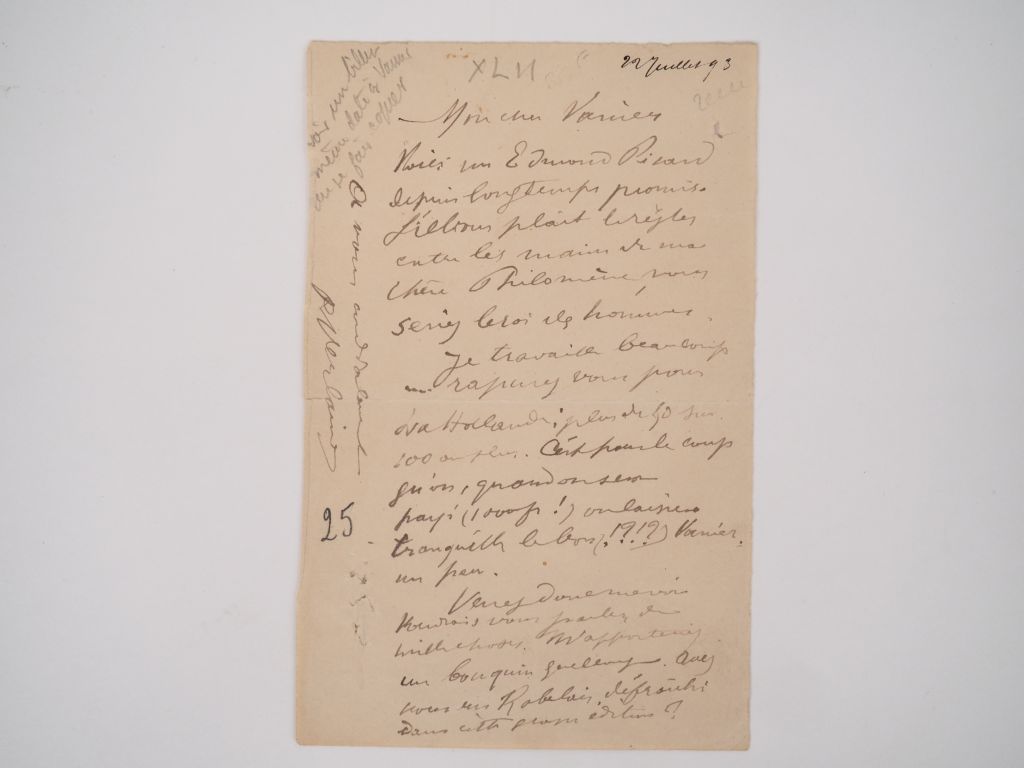 XLII
22 Juillet 93
voir un billet
même date à Vanier
Mon cher Vanier
Voici un Edmond Picard
depuis longtemps promis.
S'il vous plait le régler
entre les mains de ma
chère Philomène, vous
seriez le roi des hommes.
Je travaille beaucoup
rassurez vous pour
la Hollande; plus de 50 sur
100 Cest pour le coup
qu'on, quand on sera
payé (1000f !) on laissera
tranquille le bon (!?!?) Vanier,
un peu.
Venez donc me voir
Voudrais vous parler de
mille choses. M'apporteriez
un bouquin quelconque. Avez
vous un Rabelais défraîchi
dans cette grosse édition ?
A vous cordialement
P. Verlaine
25